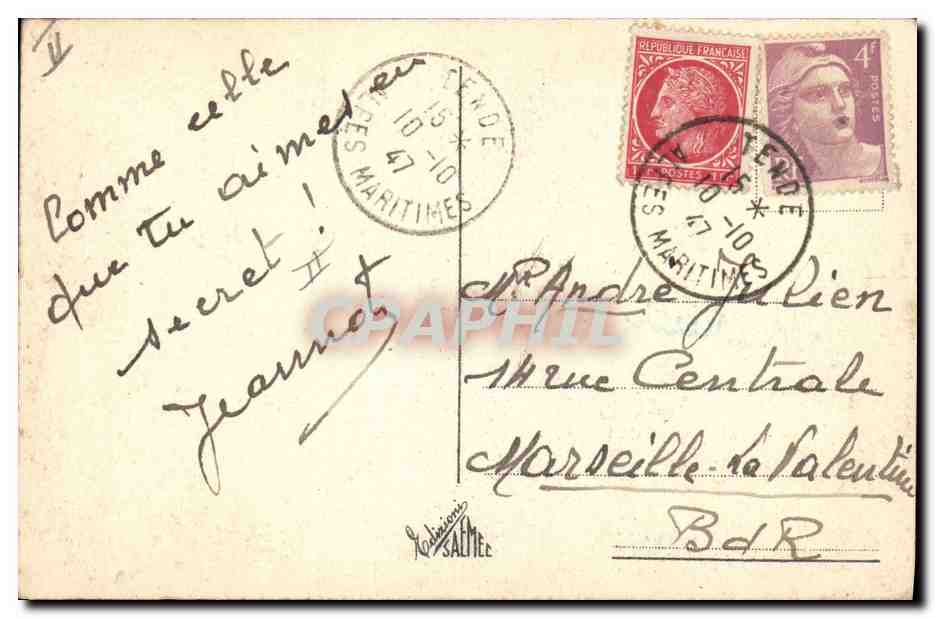 II
Comme celle
que tu aimes en
secret !
II
Jeannot
TENDE
15 *
10 -10
47
ALPES MARITIMES
RÉPUBLIQUE FRANÇAISE
POSTES 1F
4F
POSTES
TENDE
15 *
10 -10
47
ALPES MARITIMES
CPAPHIL
Mr André Julien
14 rue Centrale
Marseille-La Valentine
BdR
Edizioni
SAEMEC